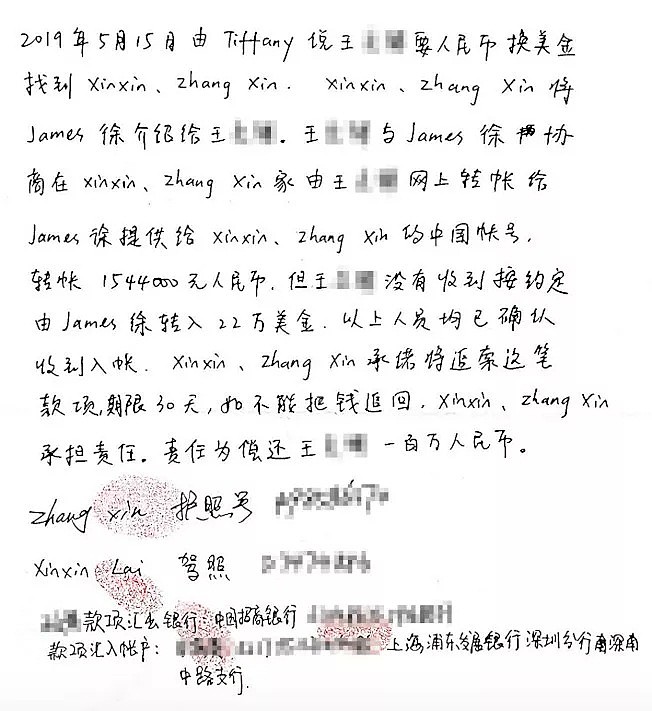 2019年5月15日由Tiffany说王 要人民币换美金
找到xinxin、zhang xin. xinxin、zhang xin将
James徐介绍给王 。王 与James徐 协
商在xinxin、zhang xin家由王 网上转帐给
James徐提供给xinxin、zhang xin的中国帐号,
转帐1544000元人民币.但王 没有收到按约定
由James徐转入22万美金.以上人员均已确认
收到入帐. xinxin、zhang xin承诺将追索这笔
款项,期限30天,如不能把钱追回.xinxin、zhang xin
承担责任。责任为偿还王 一百万人民币。
zhang xin 护照号
xinxin Lai 驾照
款项汇出银行:中国招商银行
款项汇入帐户: 上海浦东发展银行深圳分行南深南
中路支行.